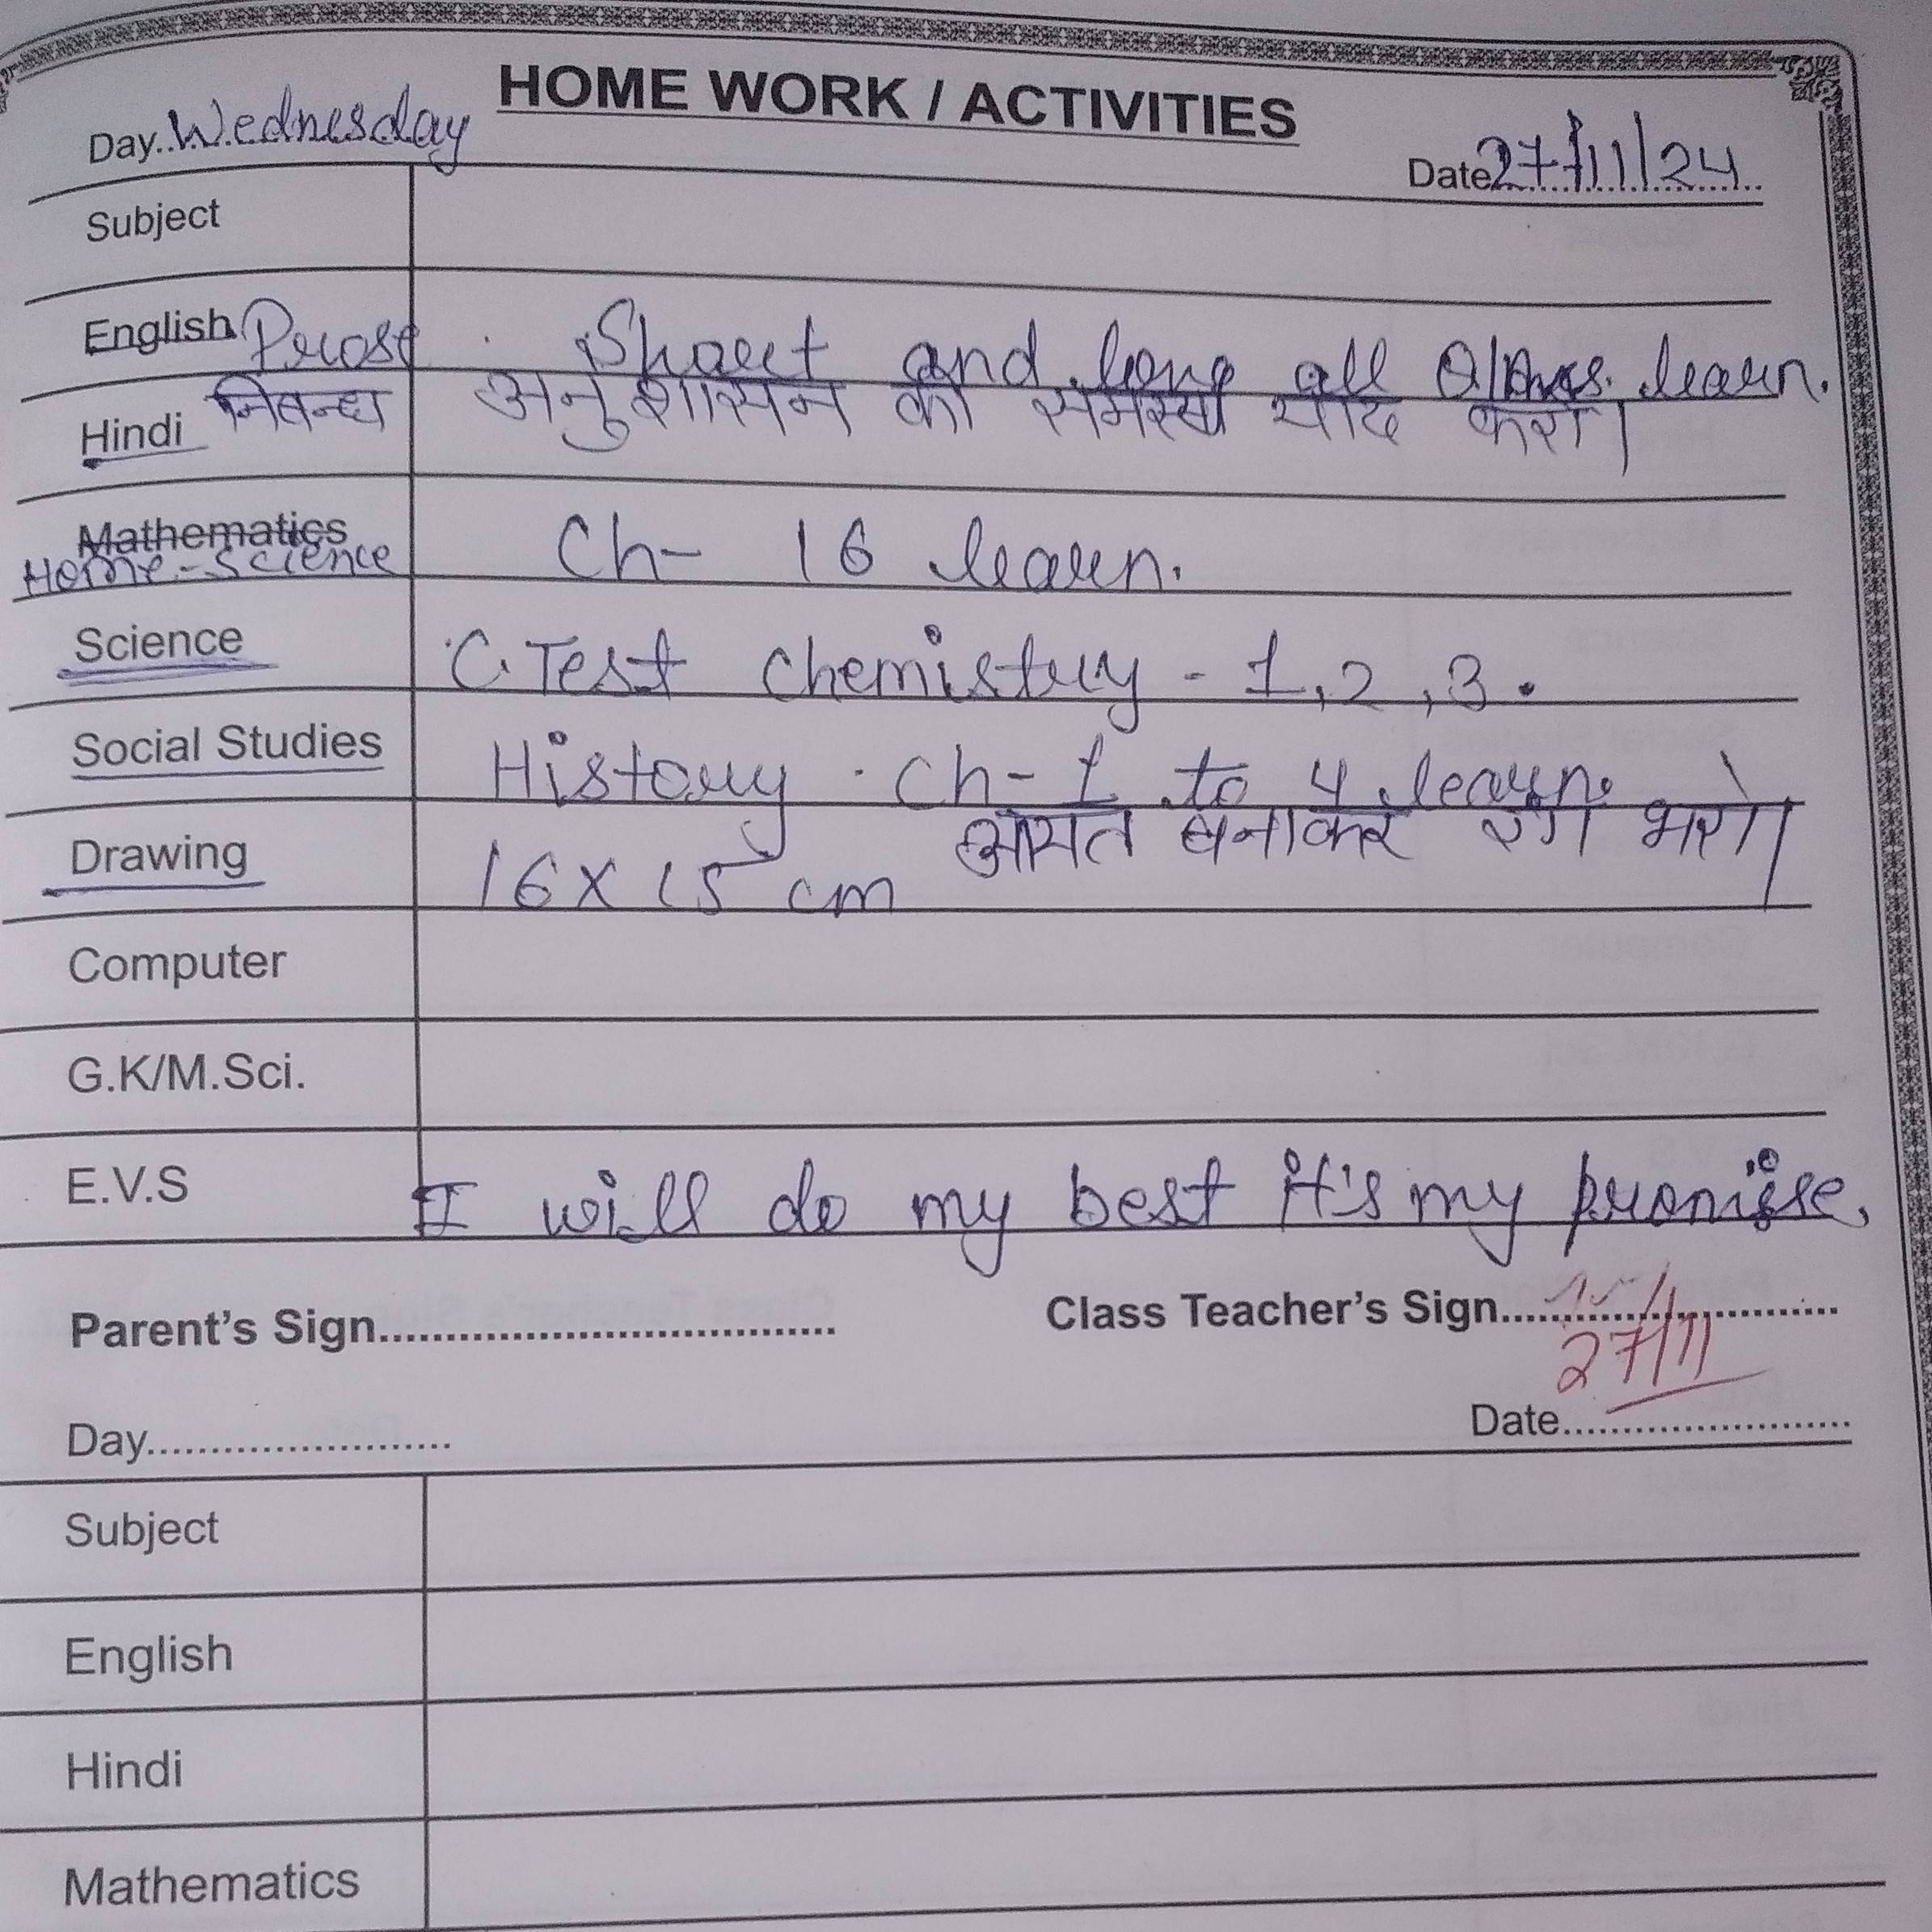 HOME WORK / ACTIVITIES
Day..Wednesday
Date 27/11/24
Subject
English Prose Short and long all Q/Ans. learn.
Hindi निबन्ध अनुशासन की समस्या याद करो।
Mathematics
Home-Science Ch- 16 learn.
Science C.Test Chemistry - 1,2,3.
Social Studies History Ch-1 to 4 learn.
Drawing 16x15 cm आयत बनाकर रंग भरो।
Computer
G.K/M.Sci.
E.V.S I will do my best it's my promise.
Parent's Sign.................................. Class Teacher's Sign.........................
27/11
Day........................ Date......................
Subject
English
Hindi
Mathematics